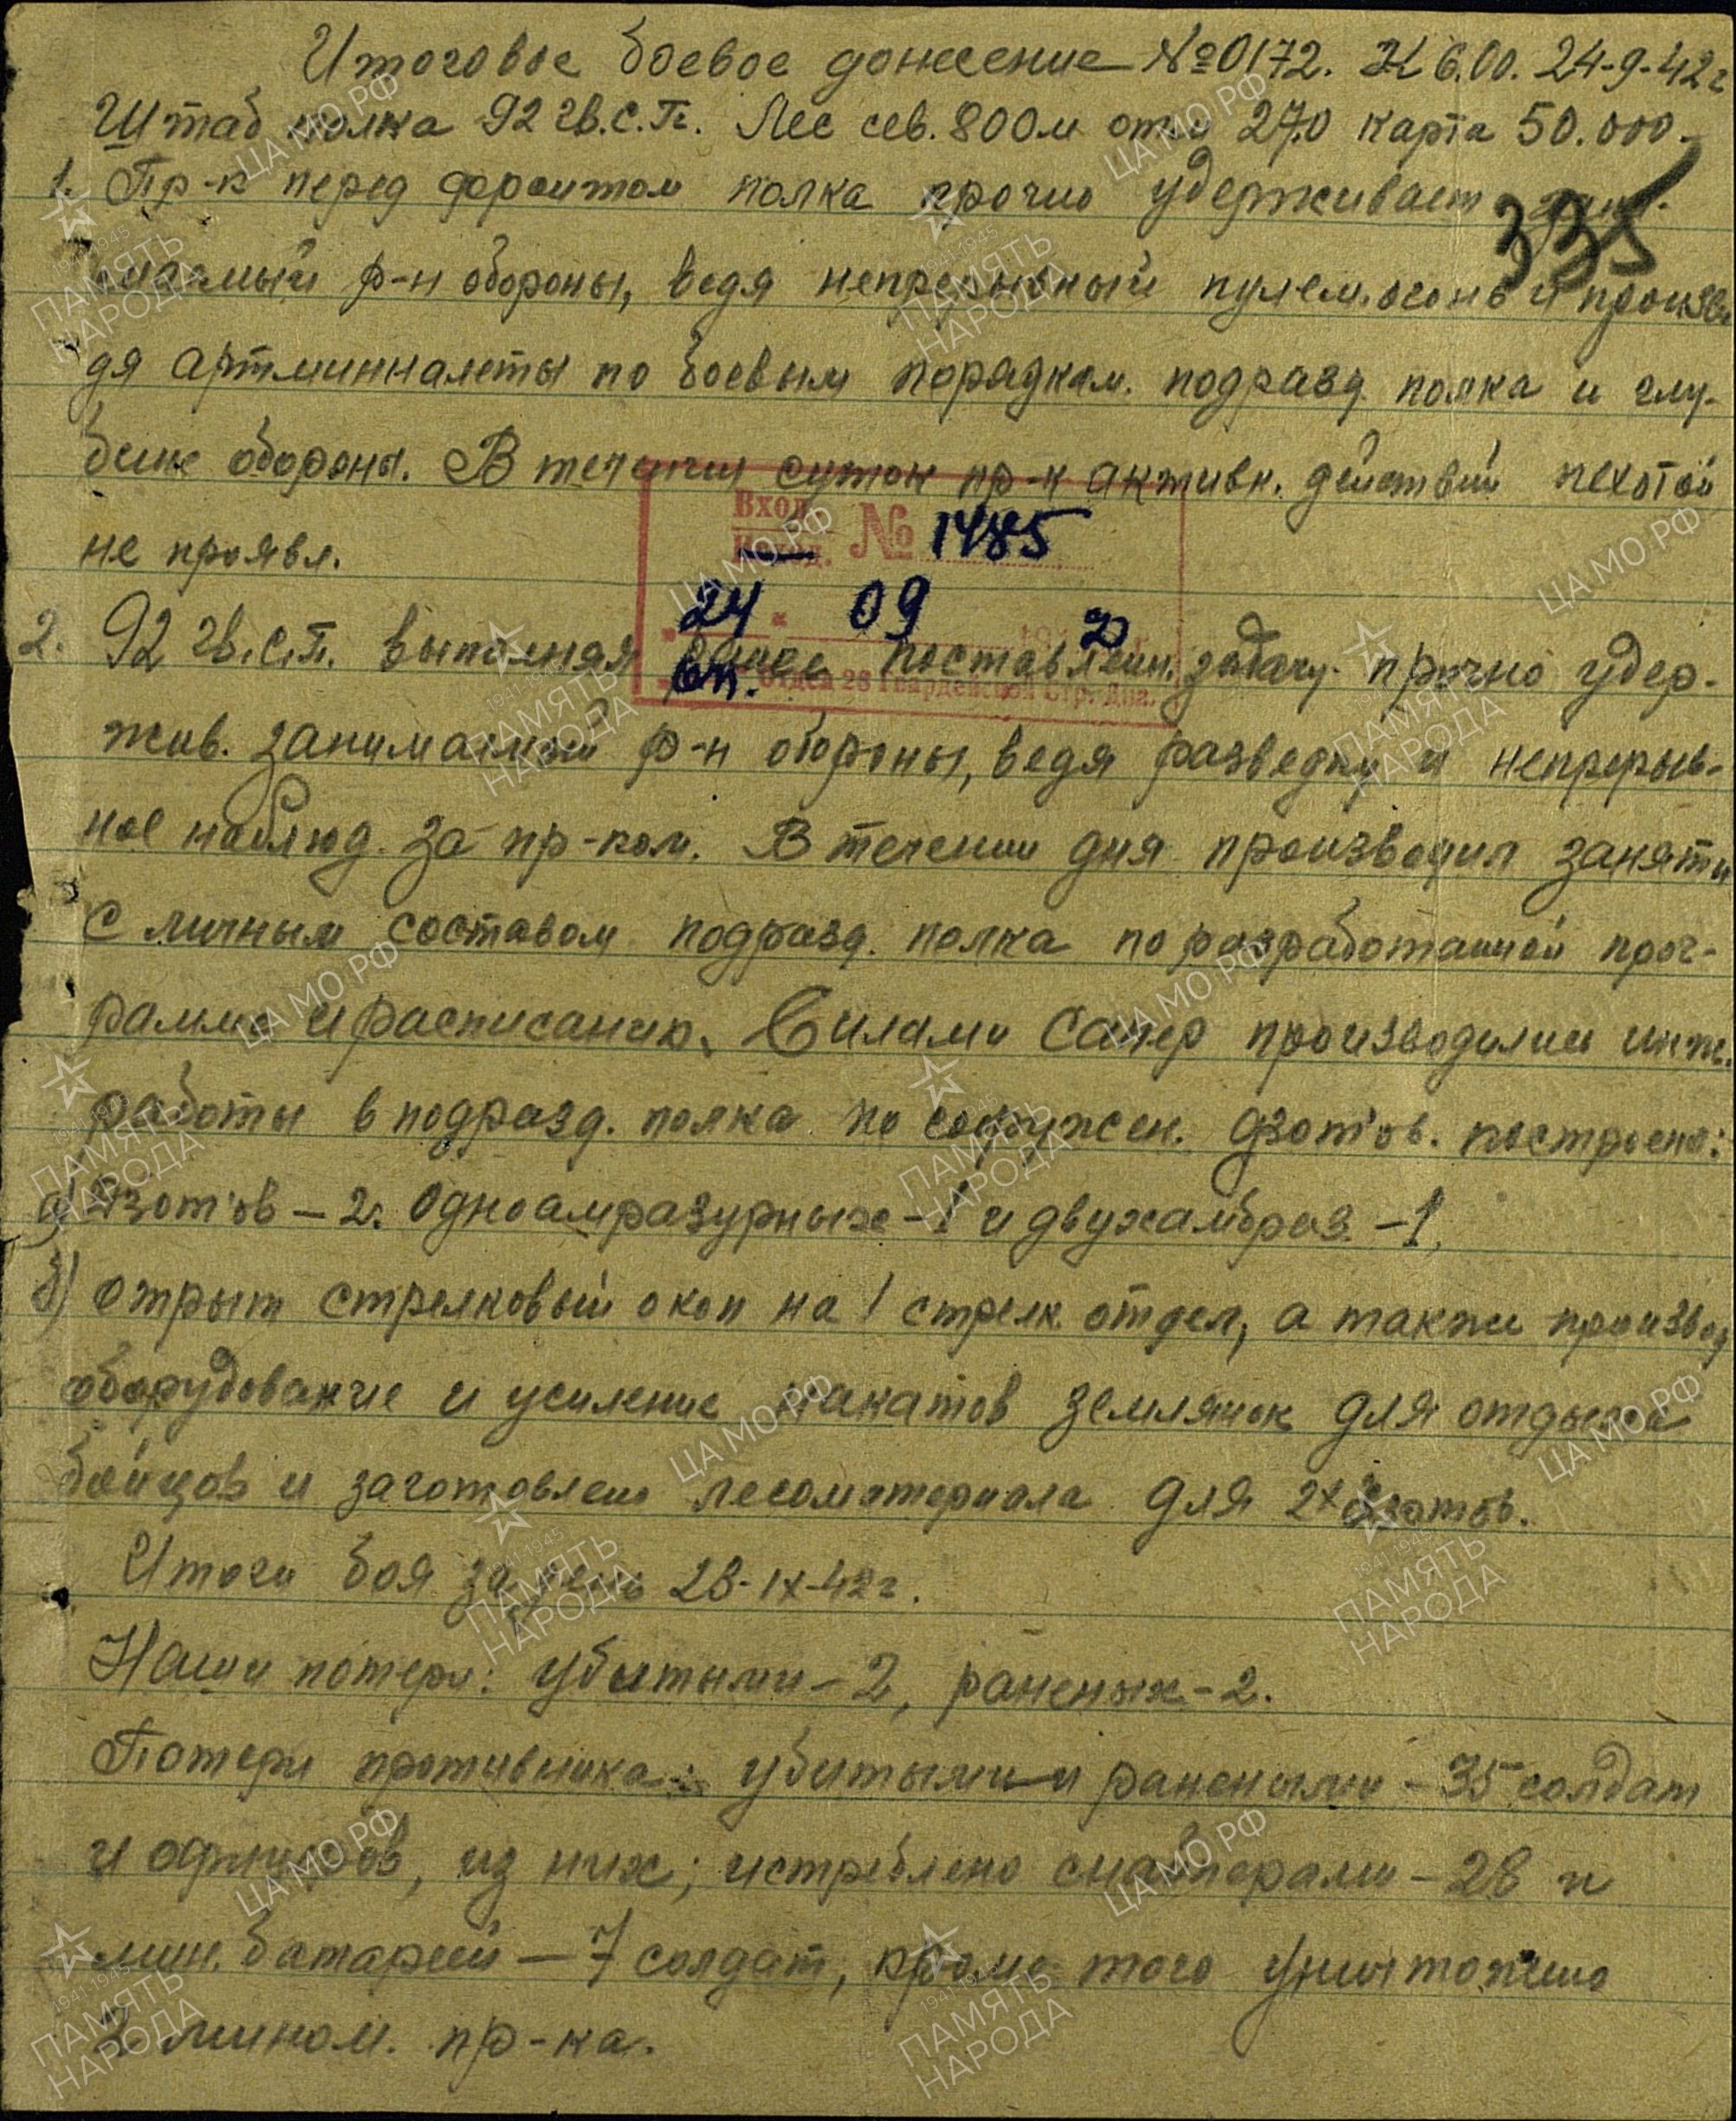 Итоговое боевое донесение №0172. К 6.00. 24-9-42г
Штаб полка 92 гв.с.п. Лес сев. 800м отм 27.0 карта 50.000
335
1. Пр-к перед фронтом полка прочно удерживает зани-
маемый р-н обороны, ведя непрерывный пулем. огонь и произво
дя артминналеты по боевым порядкам. подразд. полка и глу-
бине обороны. В течении суток пр-к активн. действий пехотой
не проявл.
Вход.
Исход. № 1485
24 09
Отдел 28 Гвардейской Стр. Див.
2. 92 гв.с.п. выполняя ранее поставленн. задачу прочно удер-
жив. занимаемый р-н обороны, ведя разведку и непрерыв-
ное наблюд. за пр-ком. В течении дня производил заняти
с личным составом подразд. полка по разработанной прог-
рамме и расписанию. Силами Сапер производились инж.
работы в подразд. полка по сооружен. дзотов. построено:
а) Дзот'ов - 2. Одноамразурных - 1 и двухамбраз. - 1.
б) отрыт стрелковый окоп на 1 стрелк. отдел, а также производ
оборудование и усиление накатов землянок для отдыха
бойцов и заготовлено лесоматериала для 2х дзотов.
Итоги боя за день 23-IX-42г.
Наши потери: убитыми - 2, раненых - 2.
Потери противника: убитыми и ранеными - 35 солдат
и офицеров, из них; истреблено снайперами - 28 и
мин. батарей - 7 солдат, кроме того уничтожено
2 мином. пр-ка.